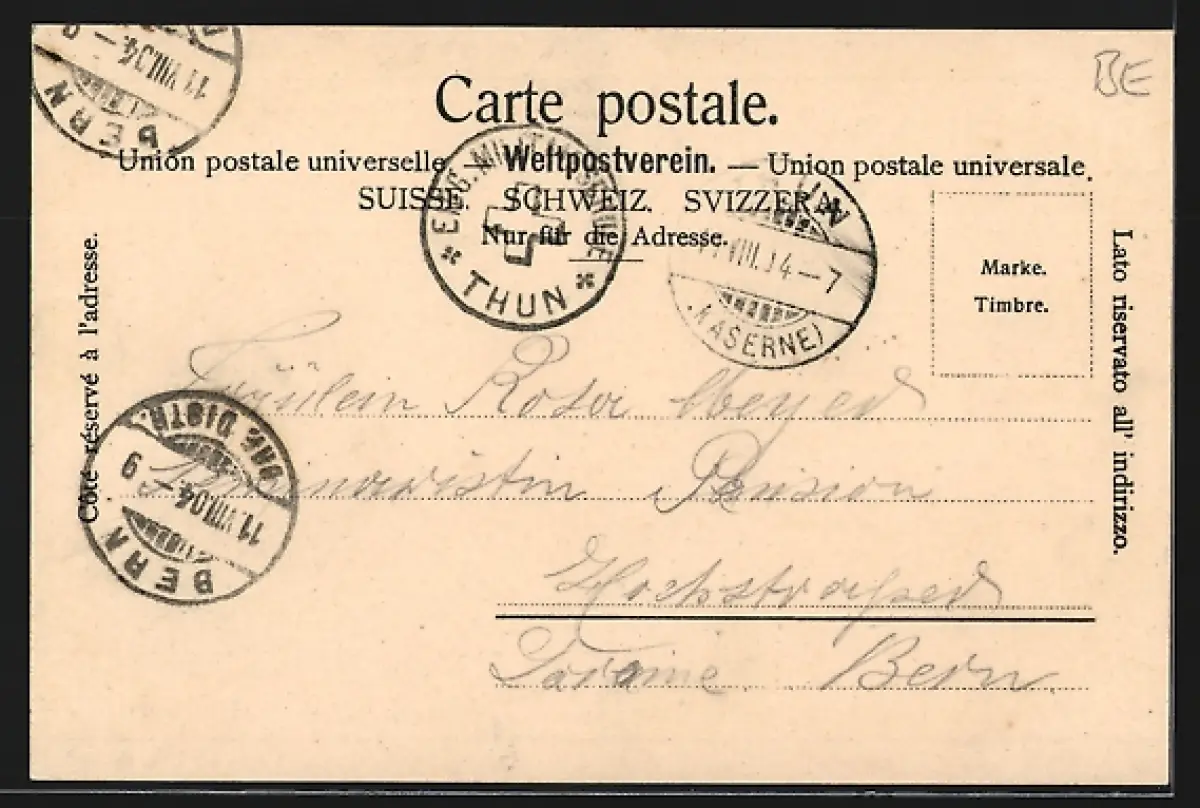 BE
BERN
11.VIII.04.–
Carte postale.
Union postale universelle. — Weltpostverein. — Union postale universale.
SUISSE. SCHWEIZ. SVIZZERA.
Nur für die Adresse.
THUN
VIII.04–7
(KASERNE)
Marke.
Timbre.
Côté réservé à l'adresse.
Lato riservato all' indirizzo.
Fräulein Rosa Meyer
Seminaristin Pension
BERN
11.VIII.04.–9
BRF. DISTR.
Bern